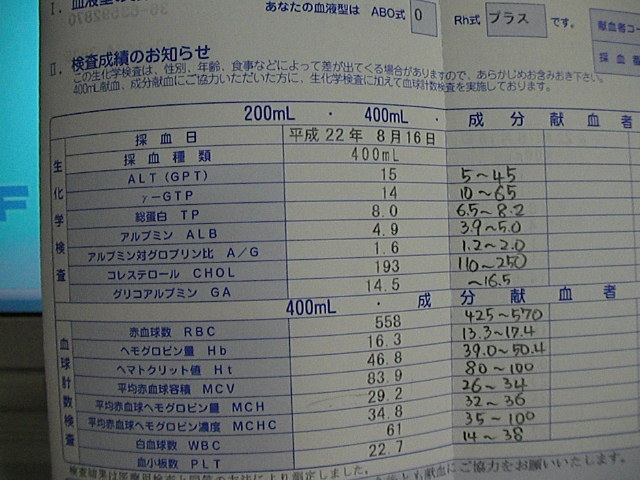 I. 血液型の
あなたの血液型は ABO式 O Rh式 プラス です。
献血者コー
II. 検査成績のお知らせ
採血番
この生化学検査は、性別、年齢、食事などによって差が出てくる場合がありますので、あらかじめお含みおき下さい。
400mL献血、成分献血にご協力いただいた方に、生化学検査に加えて血球計数検査を実施しております。
200mL ・ 400mL ・ 成分献血者
採血日 平成22年 8月16日
採血種類 400mL
生化学検査
ALT (GPT) 15 5~45
γ-GTP 14 10~65
総蛋白 TP 8.0 6.5~8.2
アルブミン ALB 4.9 3.9~5.0
アルブミン対グロブリン比 A/G 1.6 1.2~2.0
コレステロール CHOL 193 110~250
グリコアルブミン GA 14.5 ~16.5
400mL ・ 成分献血者
血球計数検査
赤血球数 RBC 558 425~570
ヘモグロビン量 Hb 16.3 13.3~17.4
ヘマトクリット値 Ht 46.8 39.0~50.4
平均赤血球容積 MCV 83.9 80~100
平均赤血球ヘモグロビン量 MCH 29.2 26~34
平均赤血球ヘモグロビン濃度 MCHC 34.8 32~36
白血球数 WBC 61 35~100
血小板数 PLT 22.7 14~38
献血にご協力をお願いいたします。